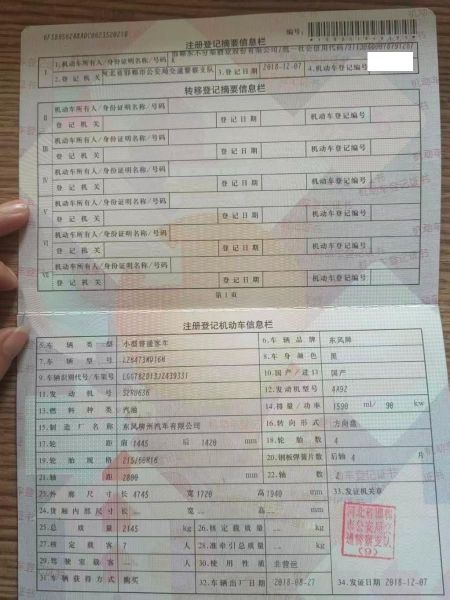 注册登记摘要信息栏
编号:
I 1.机动车所有人/身份证明名称/号码
2.登记机关 河北省邯郸市公安局交通警察支队 3.登记日期 2018-12-07 4.机动车登记编号
转移登记摘要信息栏
II 机动车所有人/身份证明名称/号码
登记机关 登记日期 机动车登记编号
III 机动车所有人/身份证明名称/号码
登记机关 登记日期 机动车登记编号
IV 机动车所有人/身份证明名称/号码
登记机关 登记日期 机动车登记编号
V 机动车所有人/身份证明名称/号码
登记机关 登记日期 机动车登记编号
VI 机动车所有人/身份证明名称/号码
登记机关 登记日期 机动车登记编号
VII 机动车所有人/身份证明名称/号码
登记机关 登记日期 机动车登记编号
第1页
注册登记机动车信息栏
5.车辆类型 小型普通客车 6.车辆品牌 东风牌
7.车辆型号 8.车身颜色 黑
9.车辆识别代号/车架号 10.国产/进口 国产
11.发动机号 12.发动机型号 4A92
13.燃料种类 汽油 14.排量/功率 1590 ml/ 90 kw
15.制造厂名称 东风柳州汽车有限公司 16.转向形式 方向盘
17.轮距 前 1445 后 1420 mm 18.轮胎数 4
19.轮胎规格 215/60R16 20.钢板弹簧片数 后轴 4 片
21.轴距 2800 mm 22.轴数 2
23.外廓尺寸 长 4745 宽 1720 高 1940 mm 33.发证机关章
24.货厢内部尺寸 长 宽 高 mm
25.总质量 2145 kg 26.核定载质量 kg
27.核定载客 7 人 28.准牵引总质量 kg
29.驾驶室载客 人 30.使用性质 非营运
31.车辆获得方式 购买 32.车辆出厂日期 2018-08-27 34.发证日期 2018-12-07
河北省邯郸
市公安局交
通警察支队
(9)